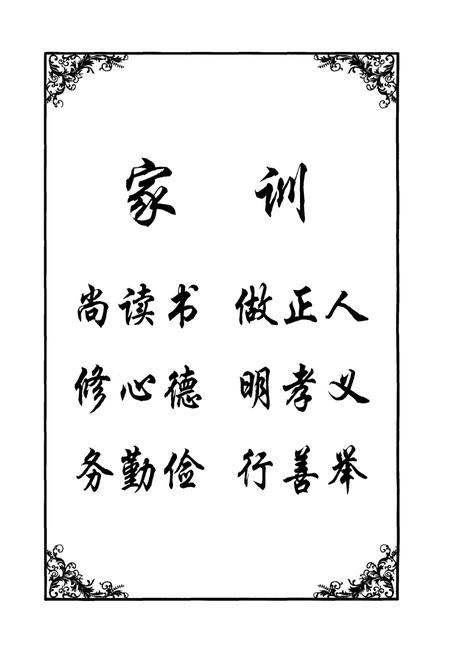 家 训
尚读书 做正人
修心德 明孝义
务勤俭 行善举